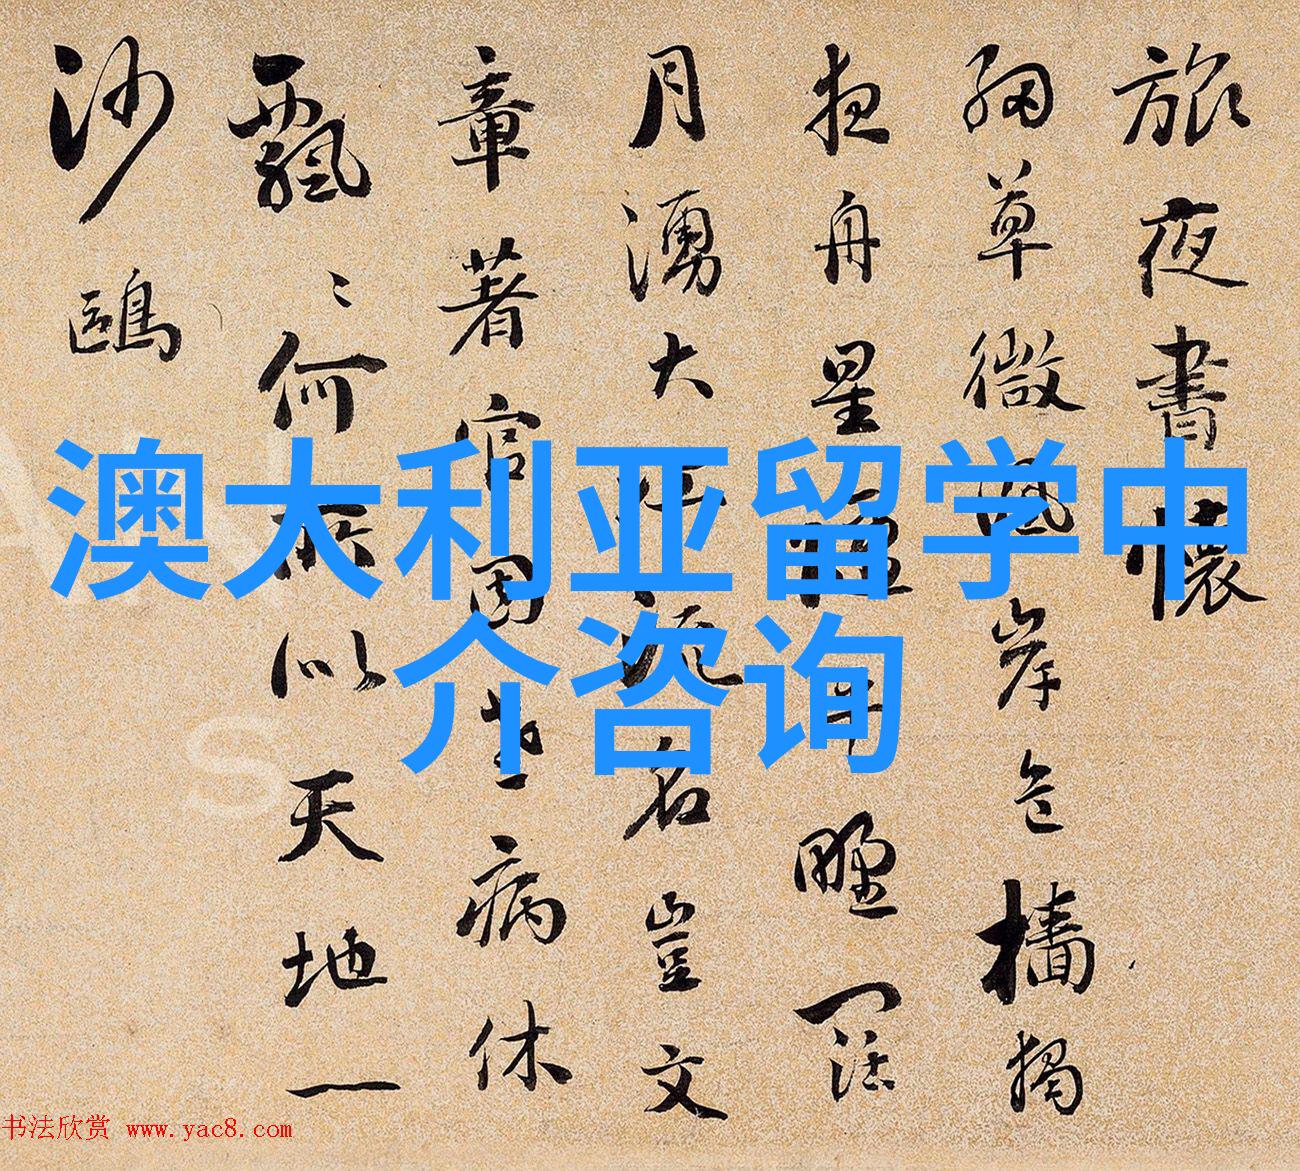 澳大利亚留学中
介咨询
旅夜書懷
細草微風岸危檣獨
夜舟星垂平野闊
月湧大江流名豈文
章著官因老病休
飄〻何所似天地一
沙鷗
书法欣赏 www.yac8.com